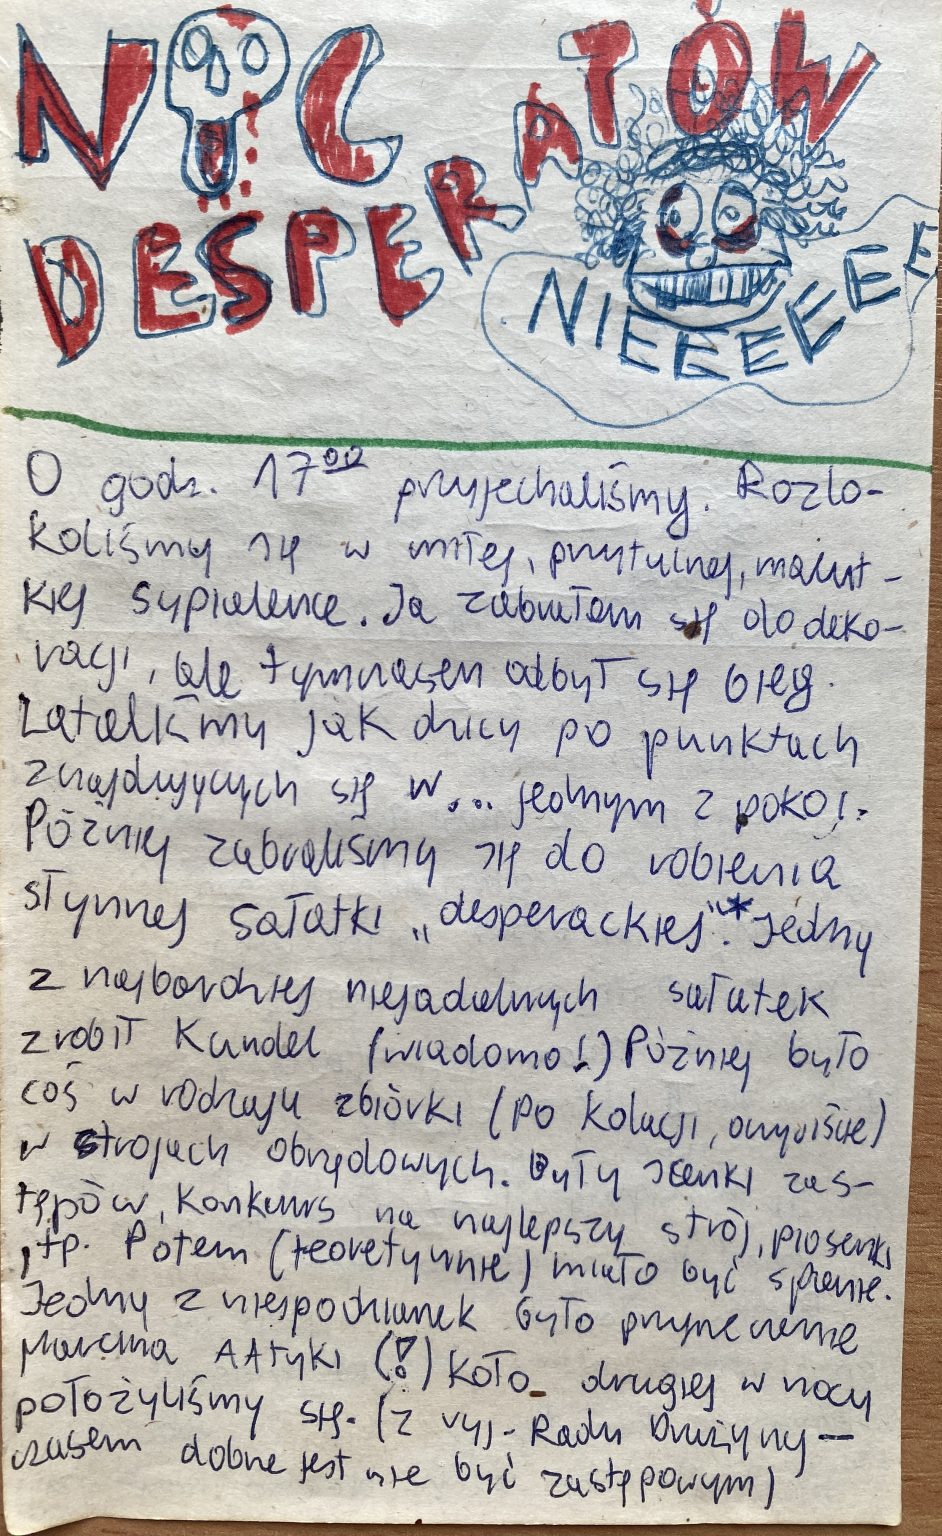 NOC
DESPERATÓW
NIEEEEEEE
O godz. 17⁰⁰ przyjechaliśmy. Rozlo-
koliśmy się w miłej, przytulnej, malut-
kiej sypialence. Ja zabrałem się do deko-
racji, ale tymczasem odbył się bieg.
Lataliśmy jak dzicy po punktach
znajdujących się w... jednym z pokoi.
Później zabraliśmy się do robienia
słynnej sałatki „desperackiej”.* Jedną
z najbardziej niejadalnych sałatek
zrobił Kundel (wiadomo!) Później było
coś w rodzaju zbiórki (po kolacji, oczywiście)
w strojach obrzędowych. Były scenki zas-
tępów, konkurs na najlepszy strój, piosenki
itp. Potem (teoretycznie) miało być spanie.
Jedną z niespodzianek było przyrzeczenie
Marcina AAtyki (!) Koło drugiej w nocy
położyliśmy się. (z wyj. Rady Drużyny —
czasem dobrze jest nie być zastępowym)